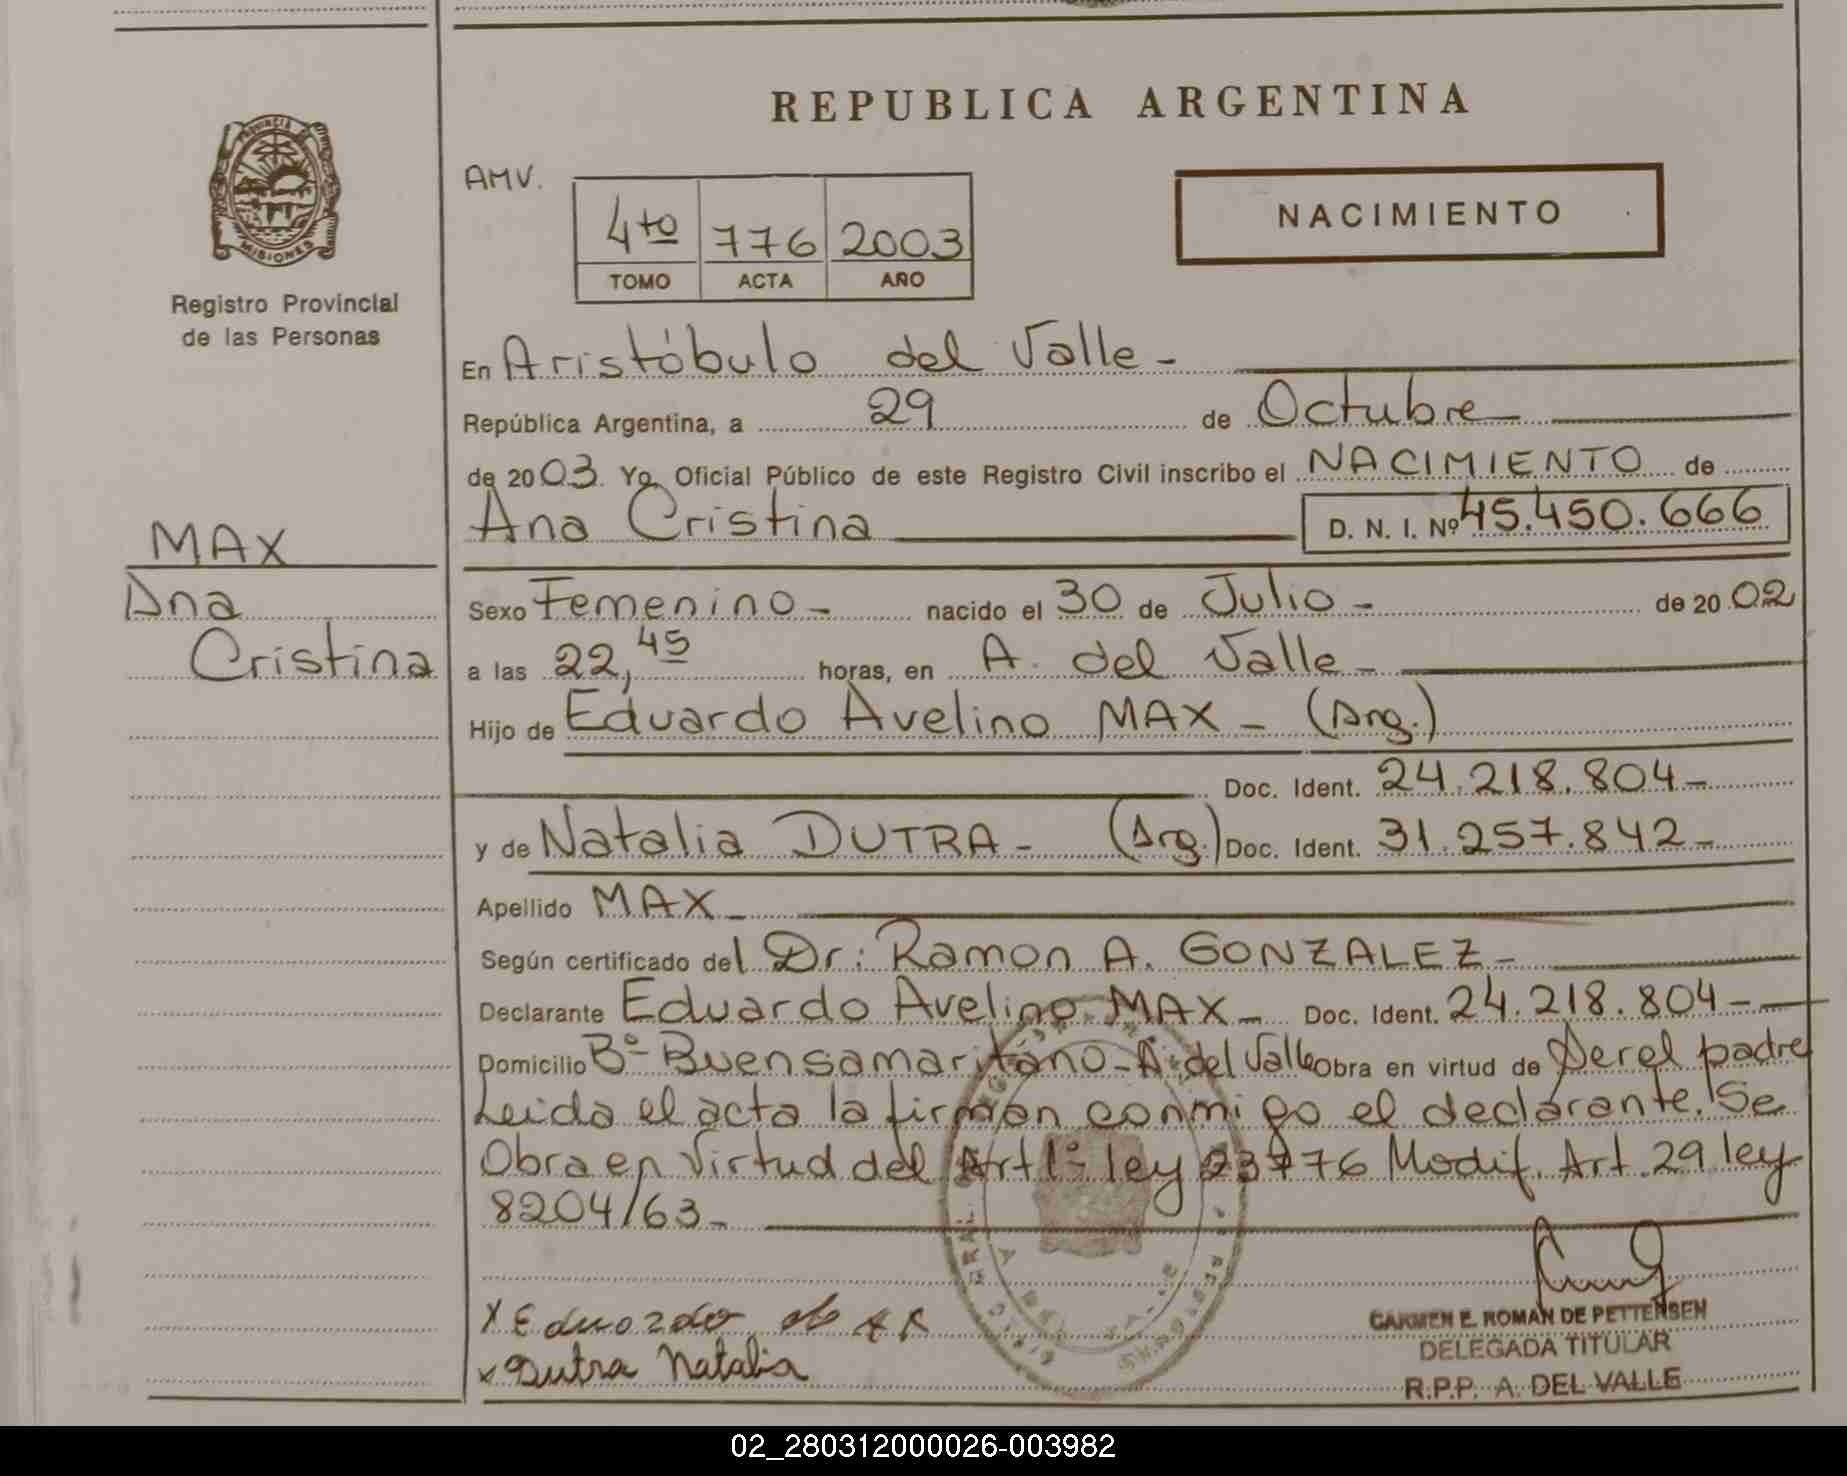 REPUBLICA ARGENTINA
AMV.
4to 776 2003
TOMO ACTA AÑO
NACIMIENTO
PROVINCIA DE
MISIONES
Registro Provincial
de las Personas
En Aristóbulo del Valle -
República Argentina, a 29 de Octubre
de 2003. Yo, Oficial Público de este Registro Civil inscribo el NACIMIENTO de
Ana Cristina D. N. I. Nº 45.450.666
MAX
Ana
Cristina
Sexo Femenino - nacido el 30 de Julio - de 20 02
a las 22,45 horas, en A. del Valle -
Hijo de Eduardo Avelino MAX - (Arg.)
Doc. Ident. 24.218.804 -
y de Natalia DUTRA - (Arg.) Doc. Ident. 31.257.842 -
Apellido MAX -
Según certificado del Dr: Ramon A. GONZALEZ -
Declarante Eduardo Avelino MAX - Doc. Ident. 24.218.804 -
Domicilio Bº Buensamaritano - A. del Valle Obra en virtud de Ser el padre
Leida el acta la firman conmigo el declarante. Se
Obra en Virtud del Art 1º ley 23776 Modif. Art. 29 ley
8204/63 -
X Eduardo
x Dutra Natalia
CARMEN E. ROMAN DE PETTERSEN
DELEGADA TITULAR
R.P.P. A. DEL VALLE
02_280312000026-003982